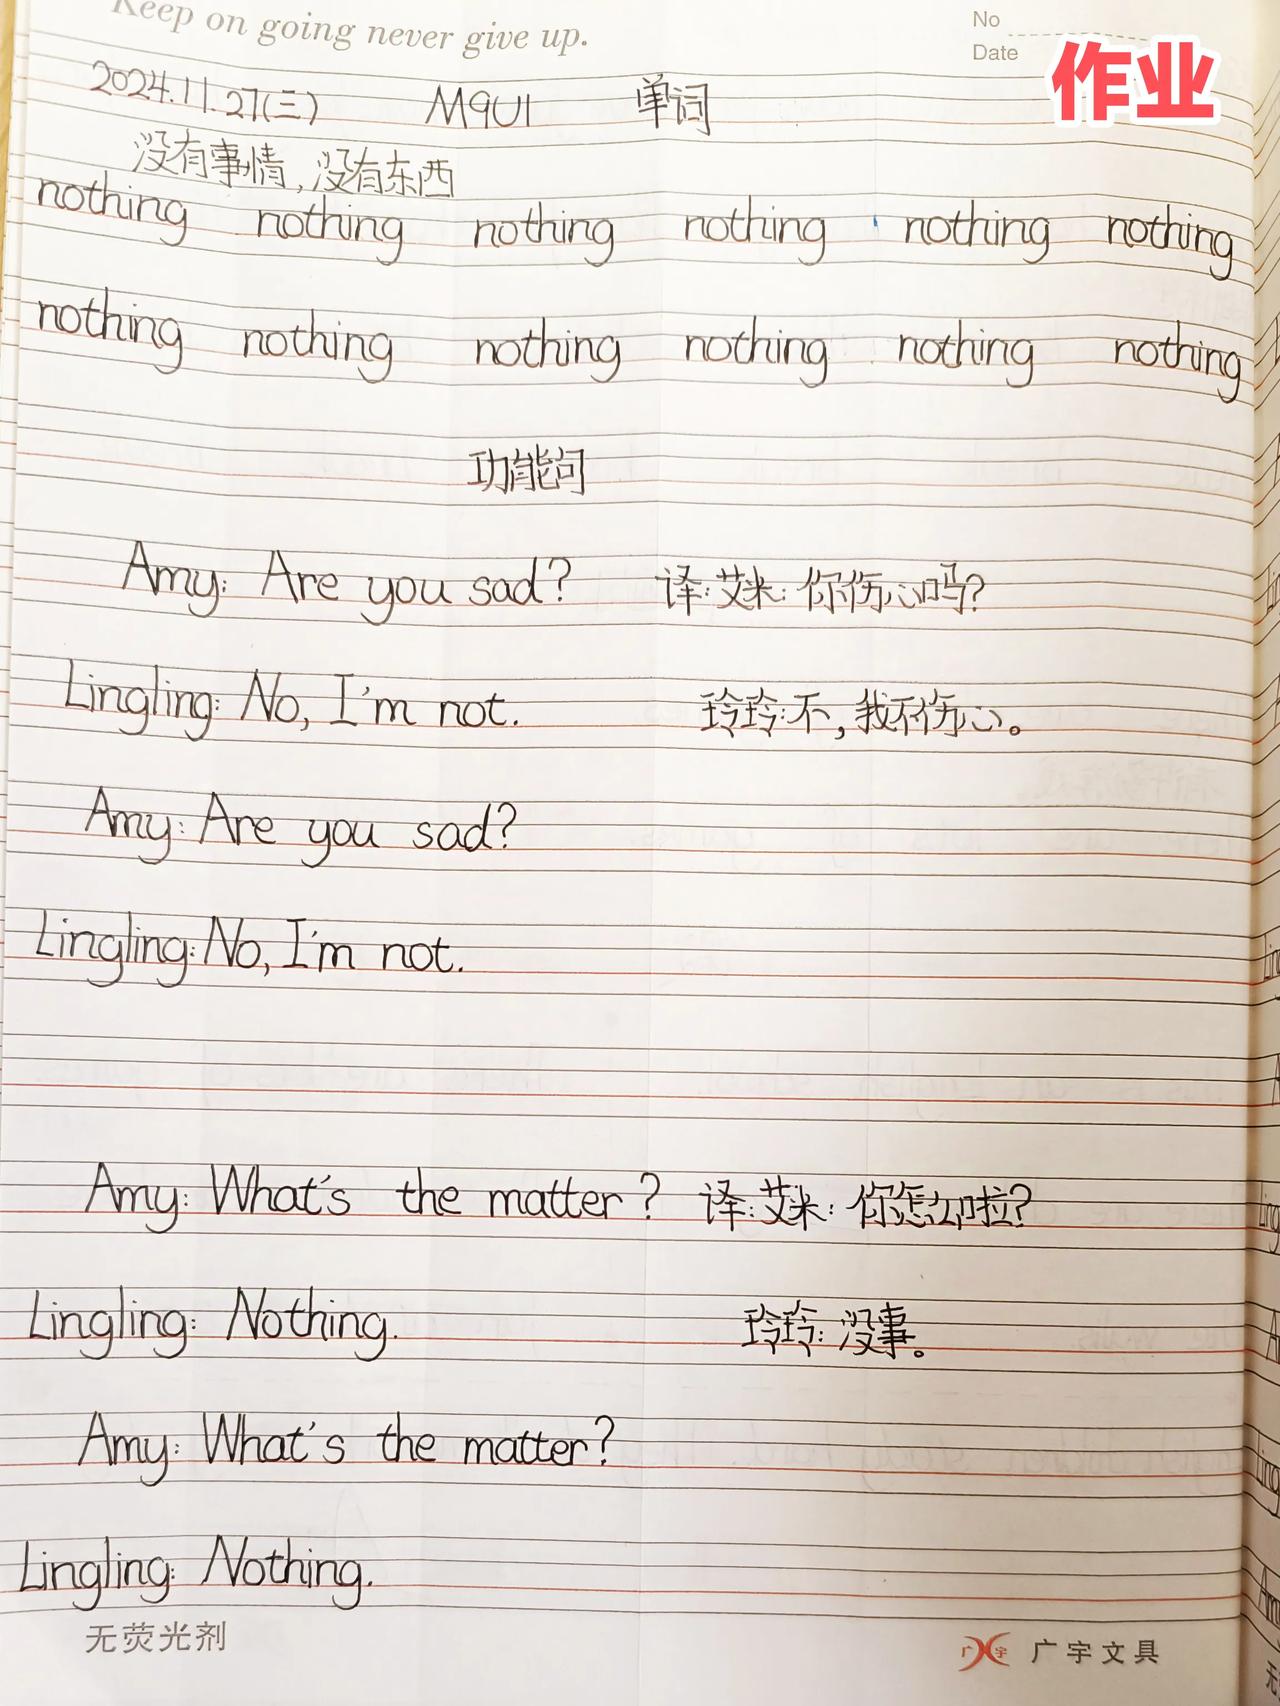 Keep on going never give up.
No
Date
作业
2024.11.27(三) M9U1 单词
没有事情,没有东西
nothing nothing nothing nothing nothing nothing
nothing nothing nothing nothing nothing nothing
功能问
Amy: Are you sad? 译:艾米:你伤心吗?
Lingling: No, I'm not. 玲玲:不,我不伤心。
Amy: Are you sad?
Lingling: No, I'm not.
Amy: What's the matter? 译:艾米:你怎么啦?
Lingling: Nothing. 玲玲:没事。
Amy: What's the matter?
Lingling: Nothing.
无荧光剂
广宇 广宇文具